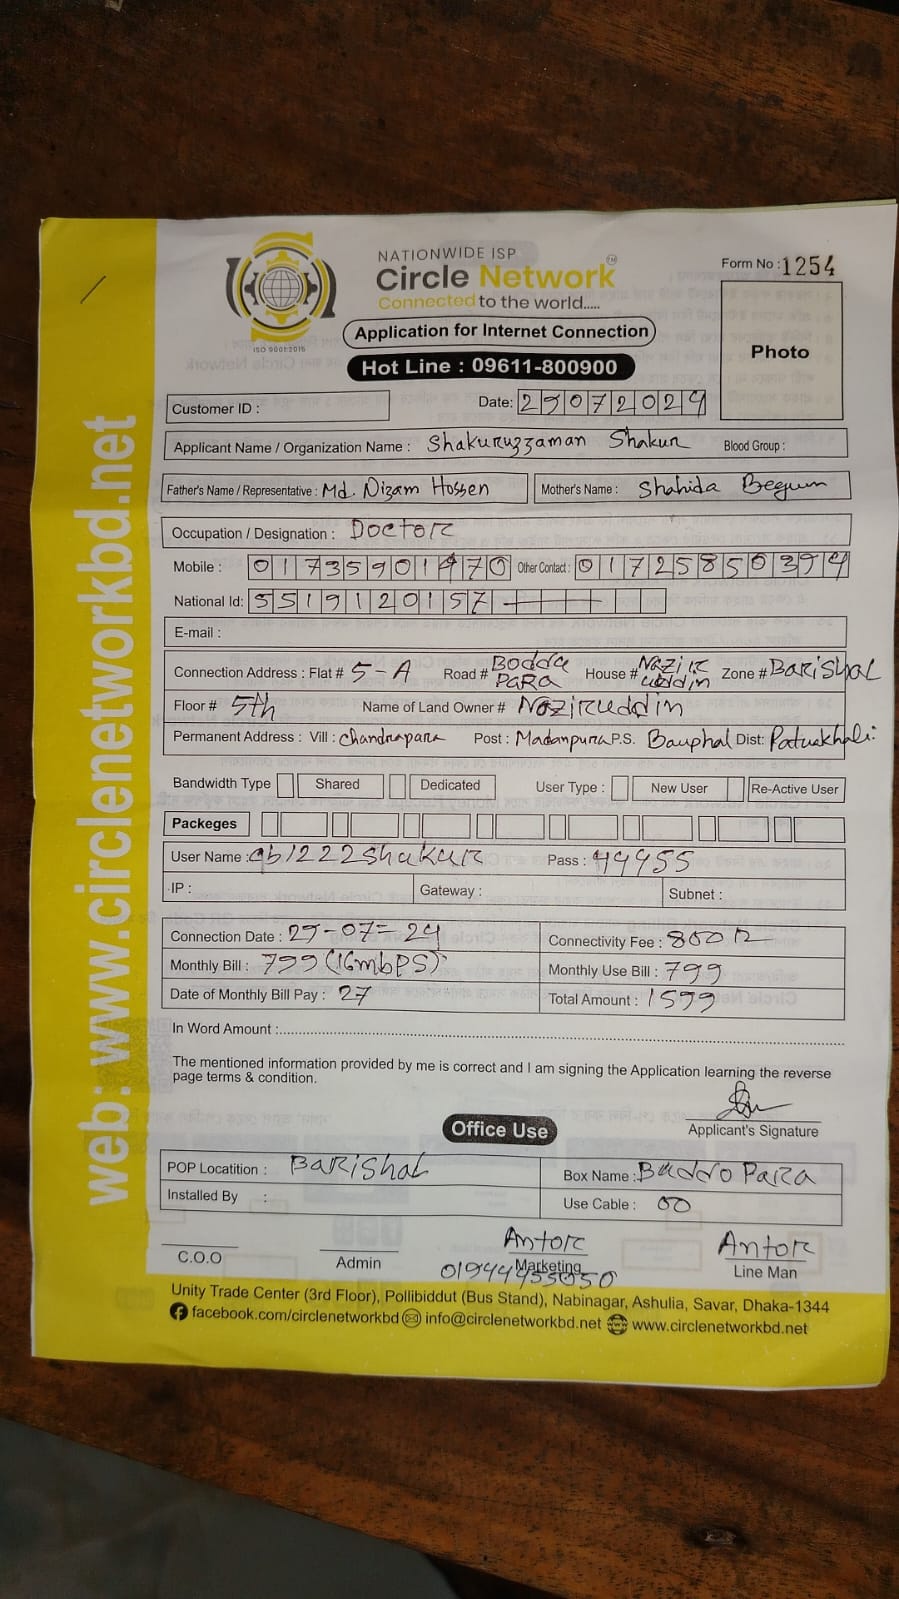 NATIONWIDE ISP
Circle Network TM
Connected to the world.....
ISO 9001:2015
Form No : 1254
Application for Internet Connection
Hot Line : 09611-800900
Photo
Customer ID :
Date: 29072024
Applicant Name / Organization Name : Shakuruzzaman Shakur Blood Group :
Father's Name / Representative : Md. Nizam Hossen Mother's Name : Shahida Begum
Occupation / Designation : Doctor
Mobile : 01735901470 Other Contact : 01725850394
National Id: 5519120157
E-mail :
Connection Address : Flat # 5-A Road # Bodda Para House # Nazir uddin Zone # Barishal
Floor # 5th Name of Land Owner # Naziruddin
Permanent Address : Vill : Chandrapara Post : Madanpura P.S. Bauphal Dist: Patuakhali
Bandwidth Type Shared Dedicated User Type : New User Re-Active User
Packeges
User Name : qb1222shakur Pass : 44455
IP : Gateway : Subnet :
Connection Date : 29-07-24 Connectivity Fee : 800
Monthly Bill : 799 (16mbps) Monthly Use Bill : 799
Date of Monthly Bill Pay : 27 Total Amount : 1599
In Word Amount :
The mentioned information provided by me is correct and I am signing the Application learning the reverse
page terms & condition.
Applicant's Signature
Office Use
POP Locatition : Barishal Box Name : Buddo Para
Installed By : Use Cable : 00
Antor Antor
C.O.O Admin Marketing Line Man
01944455050
Unity Trade Center (3rd Floor), Pollibiddut (Bus Stand), Nabinagar, Ashulia, Savar, Dhaka-1344
facebook.com/circlenetworkbd info@circlenetworkbd.net www.circlenetworkbd.net
web: www.circlenetworkbd.net